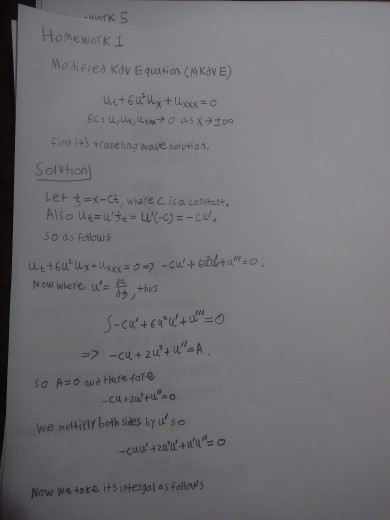 Homework 1
Modified KdV Equation (MKdVE)
u_t + 6u²u_x + u_xxx = 0
BC: u, u_x, u_xx → 0 as x → ±∞
Find it's traveling wave solution.
Solution
Let ξ = x - ct, where c is a constant.
Also u_t = u'ξ_t = u'(-c) = -cu'.
So as follows
u_t + 6u²u_x + u_xxx = 0 => -cu' + 6u²u' + u''' = 0.
Now where u' = du/dξ, thus
∫ -cu' + 6u²u' + u''' = 0
=> -cu + 2u³ + u'' = A.
So A=0 and therefore
-cu + 2u³ + u'' = 0
We multiply both sides by u' so
-cuu' + 2u³u' + u'u'' = 0
Now we take its intergal as follows